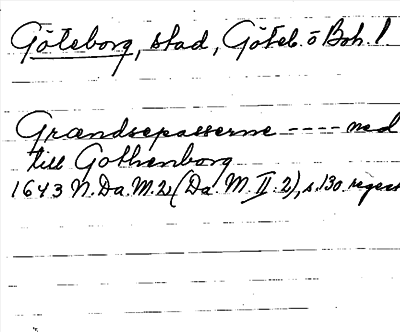 Göteborg, stad, Göteb. o Boh. l
Grændsepasserne ---- ned
till Gothenborg
1643 N. Da. M. 2 (Da. M. II. 2), s. 130. regest